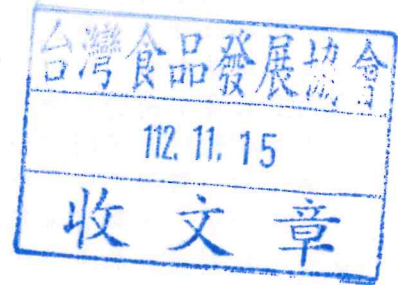 台灣食品發展協會
112. 11. 15
收文章